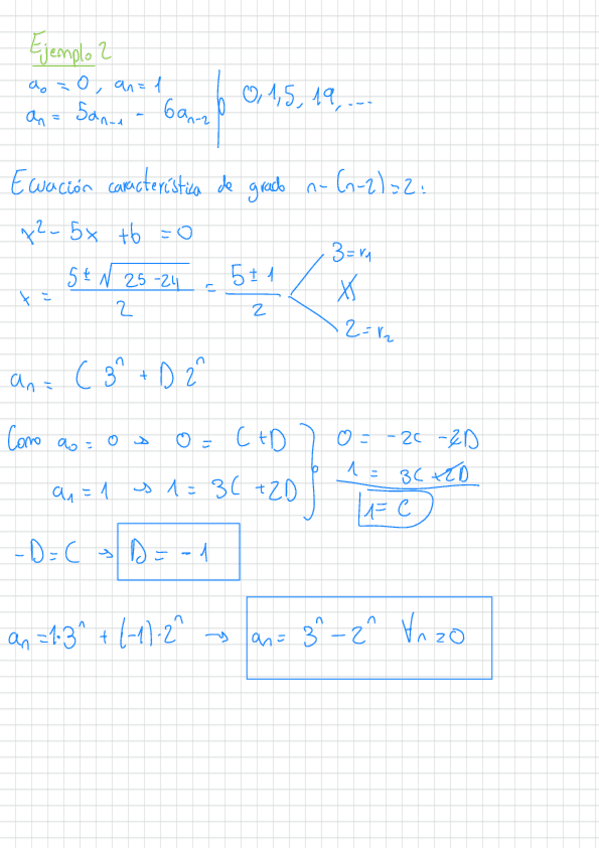 Ejemplo 2
a₀ = 0, a₁ = 1
aₙ = 5aₙ₋₁ - 6aₙ₋₂
0, 1, 5, 19, ....
Ecuación característica de grado n-(n-2)=2:
x² - 5x + 6 = 0
x = (5 ± √(25-24))/2 = (5 ± 1)/2
3 = r₁
2 = r₂
aₙ = C 3ⁿ + D 2ⁿ
Como a₀ = 0 → 0 = C+D
a₁ = 1 → 1 = 3C + 2D
0 = -2C - 2D
1 = 3C + 2D
1 = C
-D = C → D = -1
aₙ = 1·3ⁿ + (-1)·2ⁿ → aₙ = 3ⁿ - 2ⁿ ∀n ≥ 0